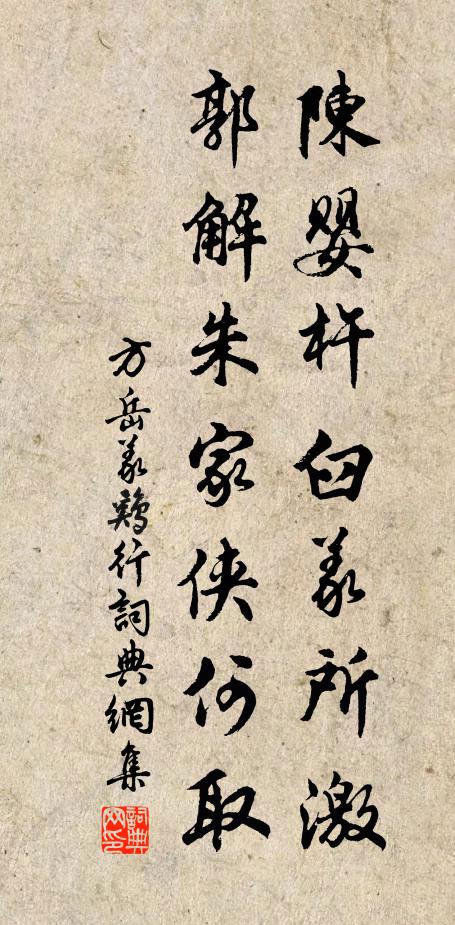 陳嬰杵臼義所激
郭解朱家俠何取
方岳義鶏行詞典網集
詞典
网印